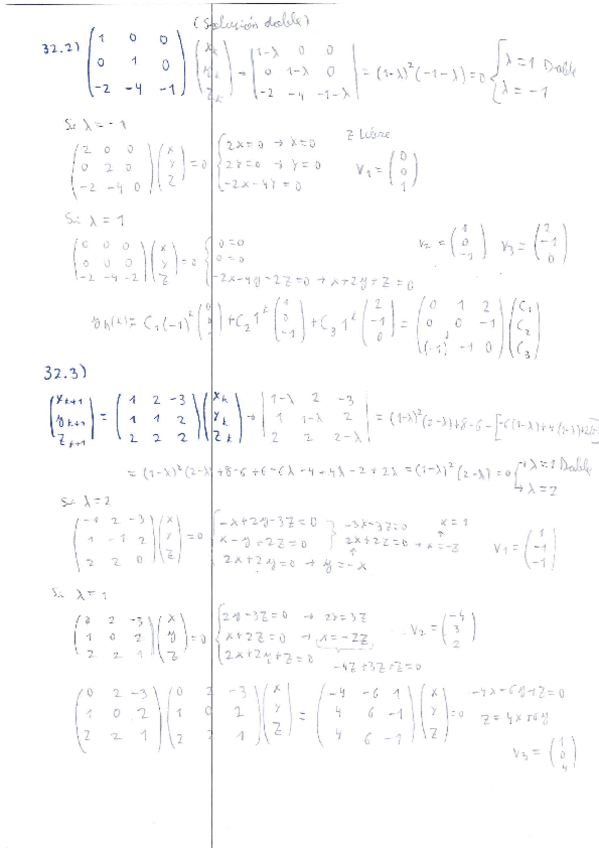 (Solución doble)
32.2) (1 0 0; 0 1 0; -2 -4 -1) (x_k; y_k; z_k) → |1-λ 0 0; 0 1-λ 0; -2 -4 -1-λ| = (1-λ)²(-1-λ)=0 { λ=1 Doble; λ=-1
Si λ=-1
(2 0 0; 0 2 0; -2 -4 0) (x; y; z) =0 { 2x=0 → x=0; 2y=0 → y=0; -2x-4y=0   z libre   V₁ = (0; 0; 1)
Si λ=1
(0 0 0; 0 0 0; -2 -4 -2) (x; y; z) =0 { 0=0; 0=0; -2x-4y-2z=0 → x+2y+z=0   V₂ = (1; 0; -1)   V₃ = (2; -1; 0)
y_h(k)= C₁(-1)^k (0; 0; 1) + C₂1^k (1; 0; -1) + C₃1^k (2; -1; 0) = (0 1 2; 0 0 -1; (-1)^k -1 0) (C₁; C₂; C₃)
32.3)
(x_{k+1}; y_{k+1}; z_{k+1}) = (1 2 -3; 1 1 2; 2 2 2) (x_k; y_k; z_k) → |1-λ 2 -3; 1 1-λ 2; 2 2 2-λ| = (1-λ)²(2-λ)+8-6-[-6(1-λ)+4(1-λ)+2(2-λ)]
= (1-λ)²(2-λ)+8-6+6-6λ-4+4λ-4+2λ = (1-λ)²(2-λ)=0 { → λ=1 Doble; → λ=2
Si λ=2
(-1 2 -3; 1 -1 2; 2 2 0) (x; y; z) =0 { -x+2y-3z=0; x-y+2z=0; 2x+2y=0 → y=-x } -3x-3z=0; 2x+2z=0 → x=-z   x=1   V₁ = (1; -1; -1)
Si λ=1
(0 2 -3; 1 0 2; 2 2 1) (x; y; z) =0 { 2y-3z=0 → 2y=3z; x+2z=0 → x=-2z; 2x+2y+z=0   -4z+3z+z=0   V₂ = (-4; 3; 2)
(0 2 -3; 1 0 2; 2 2 1) (0 2 -3; 1 0 2; 2 2 1) (x; y; z) = (-4 -6 1; 4 6 -1; 4 6 -1) (x; y; z) =0   -4x-6y+z=0
z=4x+6y
V₃ = (1; 0; 4)